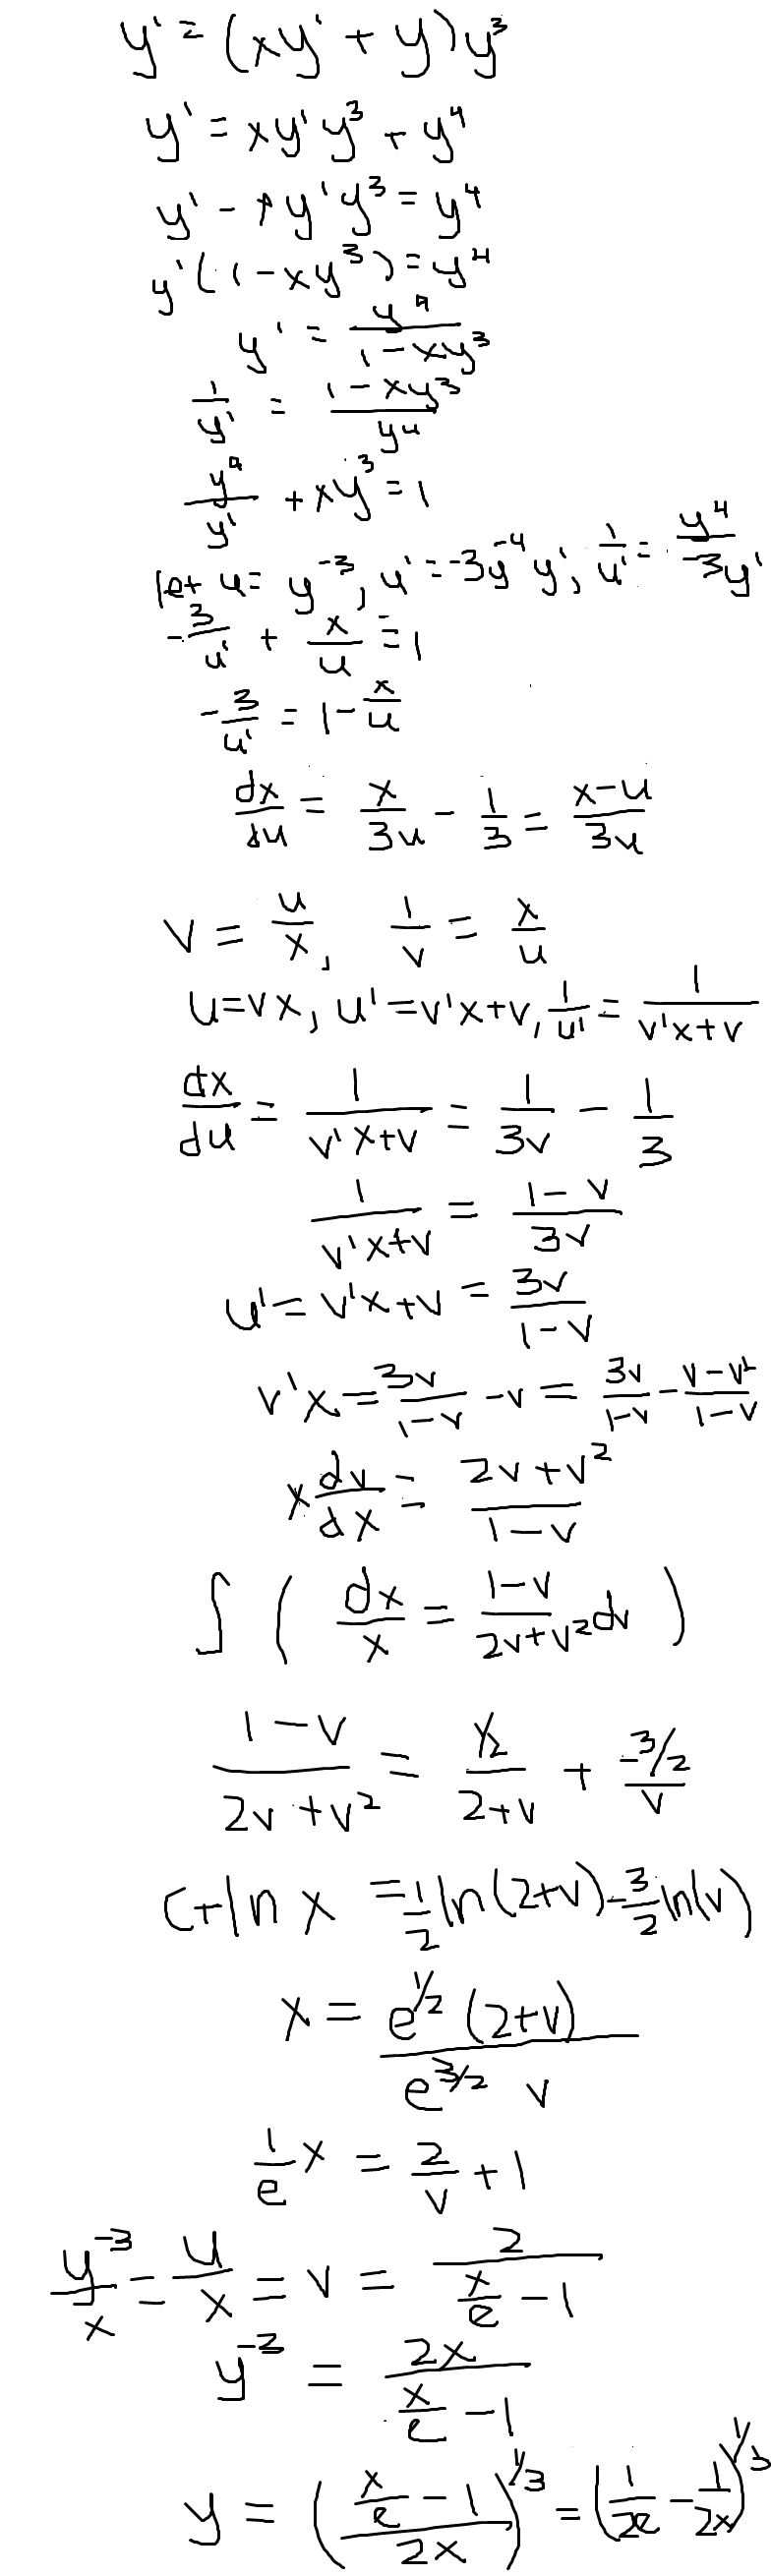 y' = (xy' + y)y³
y' = xy'y³ + y⁴
y' - xy'y³ = y⁴
y'(1 - xy³) = y⁴
y' = y⁴/(1 - xy³)
1/y' = (1 - xy³)/y⁴
y⁴/y' + xy³ = 1
let u = y⁻³, u' = -3y⁻⁴y', 1/u' = y⁴/(-3y')
-3/u' + x/u = 1
-3/u' = 1 - x/u
dx/du = x/3u - 1/3 = (x-u)/3u
v = u/x, 1/v = x/u
u = vx, u' = v'x+v, 1/u' = 1/(v'x+v)
dx/du = 1/(v'x+v) = 1/3v - 1/3
1/(v'x+v) = (1-v)/3v
u' = v'x+v = 3v/(1-v)
v'x = 3v/(1-v) - v = 3v/(1-v) - (v-v²)/(1-v)
x dv/dx = (2v+v²)/(1-v)
∫ ( dx/x = (1-v)/(2v+v²) dv )
(1-v)/(2v+v²) = (1/2)/(2+v) + (-3/2)/v
C+ln x = 1/2 ln(2+v) - 3/2 ln(v)
x = e^(1/2) (2+v)/(e^(3/2) v)
1/e x = 2/v + 1
y⁻³/x = u/x = v = 2/(x/e - 1)
y⁻³ = 2x/(x/e - 1)
y = ((x/e - 1)/2x)^(1/3) = (1/2e - 1/2x)^(1/3)